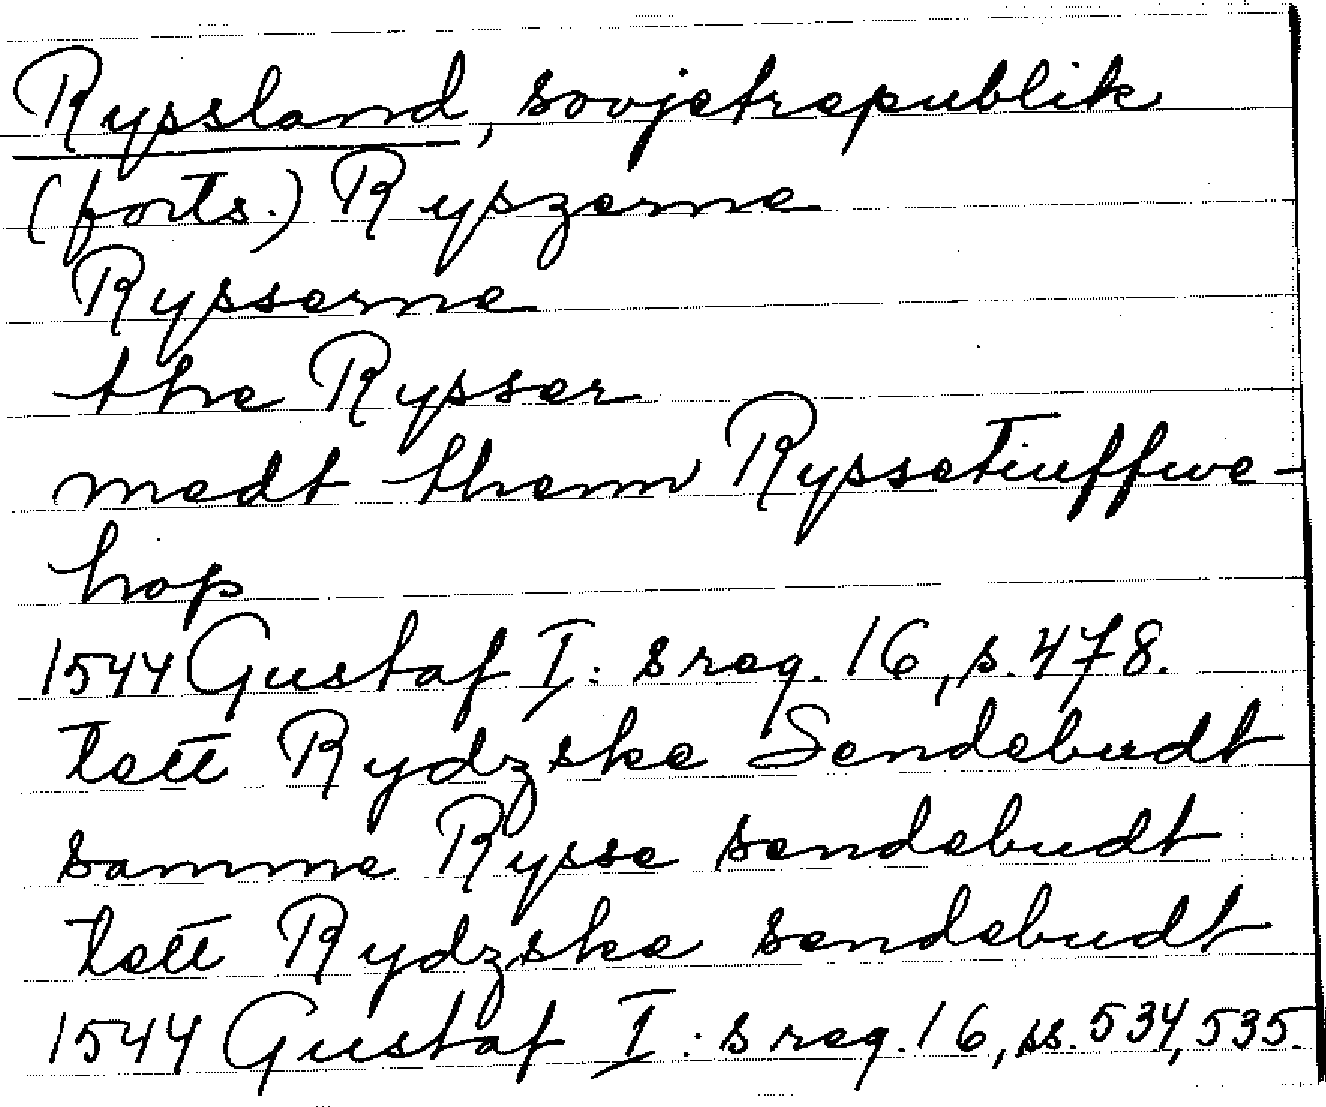 Ryssland, sovjetrepublik
(forts.) Ryszerne
Rysserne
the Rysser
medt themRyssetiuffwe-
hop
1544 Gustaf I: s reg. 16, s. 478.
tett Rydzske Sendebudt
samme Rysse sendebudt
tett Rydzske sendebudt
1544 Gustaf I: s reg. 16, ss. 534, 535.